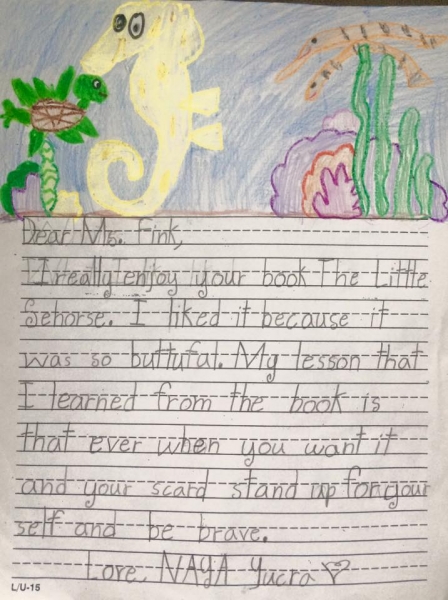 Dear Ms. Fink,
I really enjoy your book The Little
Sehorse. I liked it because it
was so buttuful. My lesson that
I learned from the book is
that ever when you want it
and your scard stand up for your
self and be brave.
Love, NAYA Yucra
L/U-15